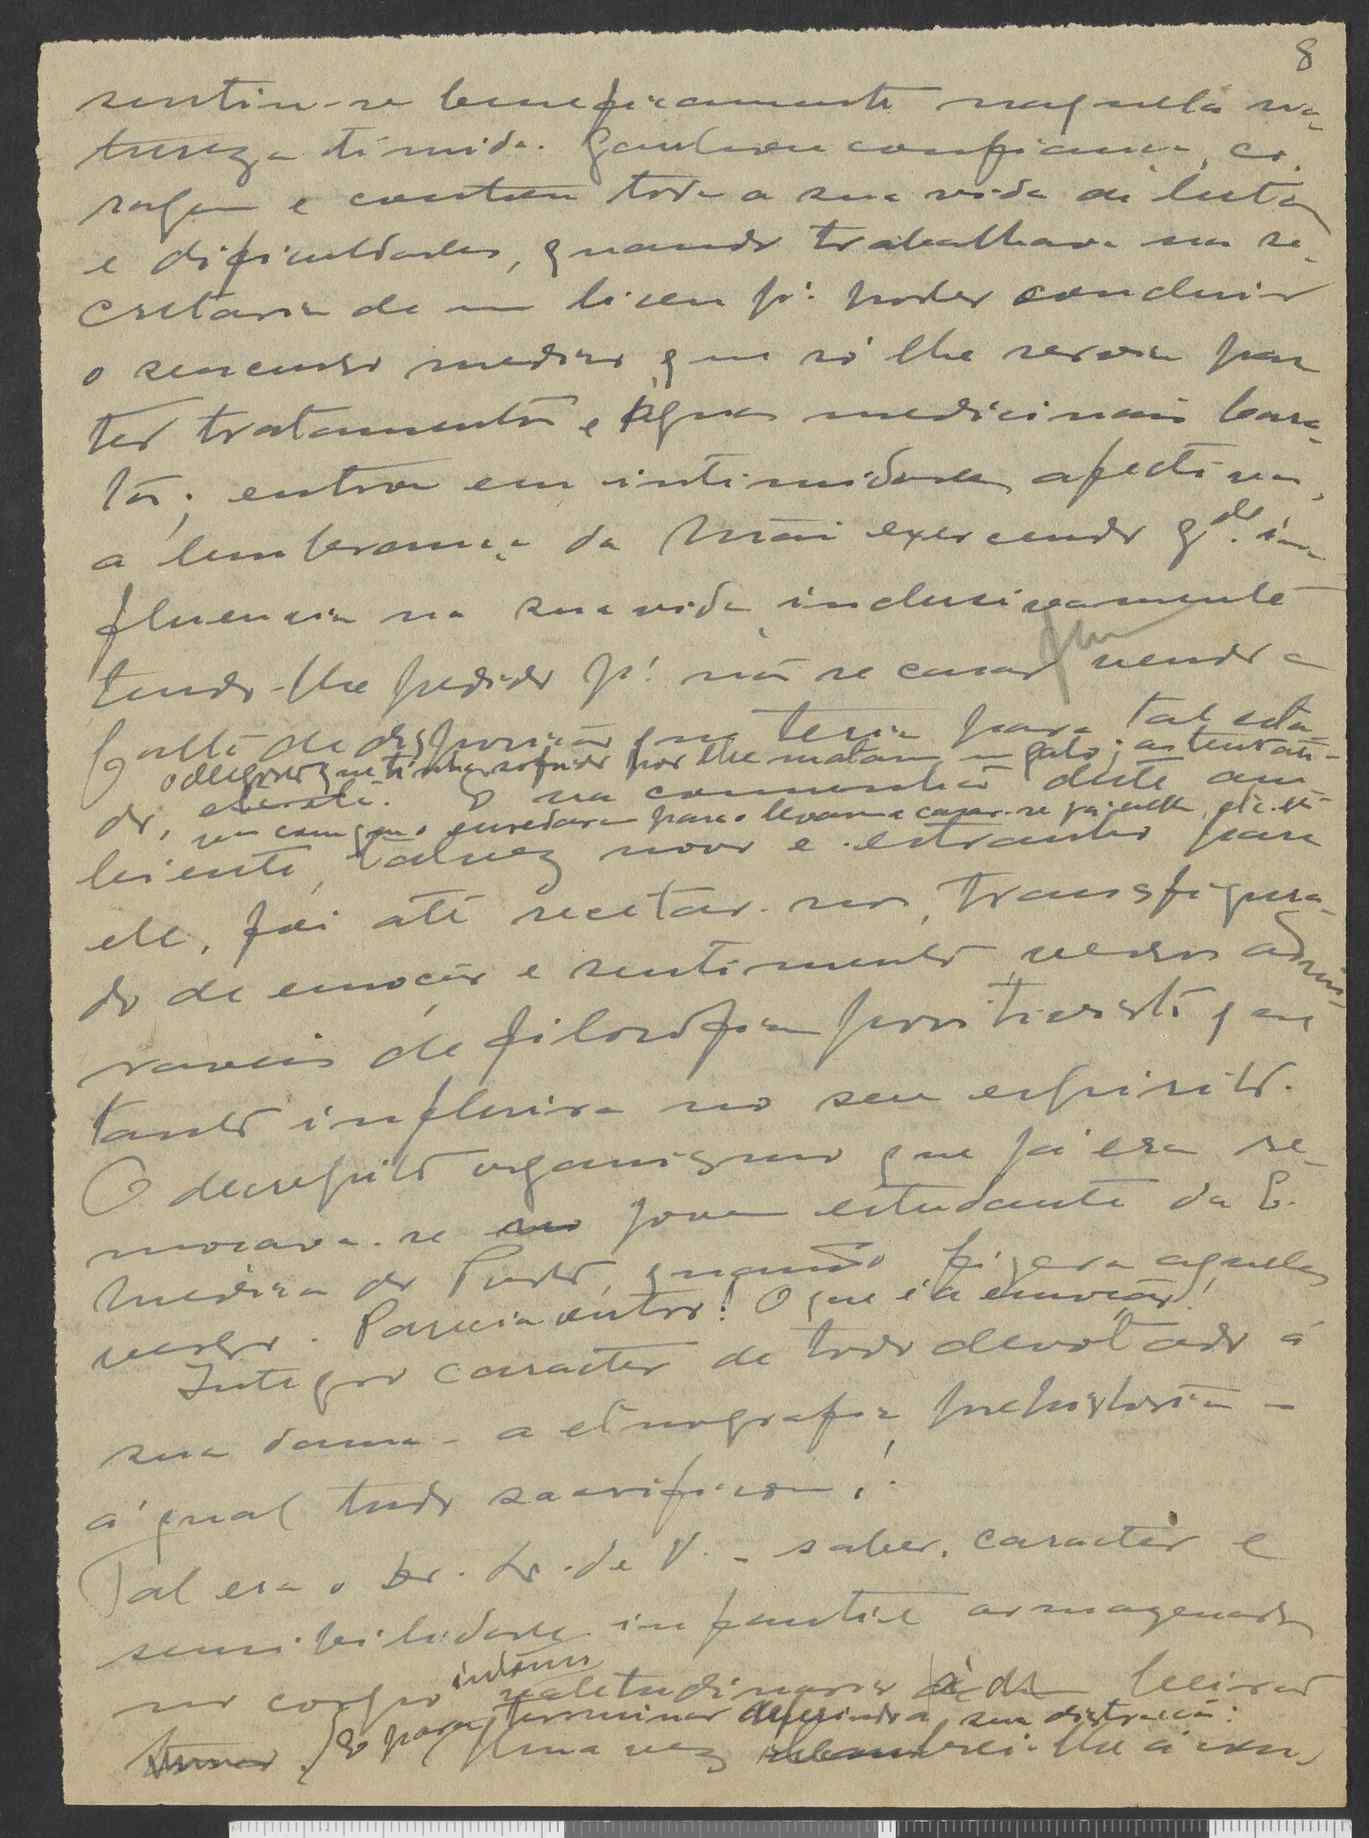 8
sentiu-se beneficamente naquela na-
tureza timida. Ganhou confiança, co-
ragem e contou toda a sua vida de luta
e dificuldades, quando trabalhava na se-
cretaria de um liceu pª poder concluir
o seu curso medico que só lhe servia para
ter tratamento e águas medicinais bara-
tas; entrou em intimidades afectivas,
a lembrança da Mãi exercendo gde. in-
fluencia na sua vida, inclusivamente
tendo-lhe pedido pª não se casar, vendo a
falta de disposição que teria para tal esta-
o desgosto que tinha sofrido por lhe matarem um gato; as tentati-
do, etc. etc. E na comunhão deste am-
vas com que o enredaram para o levarem a casar-se já velho, etc. etc.
biente, talvez novo e estranho para
ele, foi até recitar-nos, transfigura-
do de emoção e sentimento, versos admi-
raveis de filosofia positivista que
tanto influira no seu espirito.
O decrepito organismo que já era re-
moçara-se no jovem estudante da E.
Medica do Porto, quando fizera aqueles
versos. Parecia outro! O que é a emoção!
Integro caracter de todo devotado á
sua dama - a etnografia, prehistoria -
á qual tudo sacrificou!
Tal era o Dr. L. de V. - saber, caracter e
sensibilidade infantil armazenados
no corpo valetudinario
E para terminar sua distracção:
Uma vez lhe á